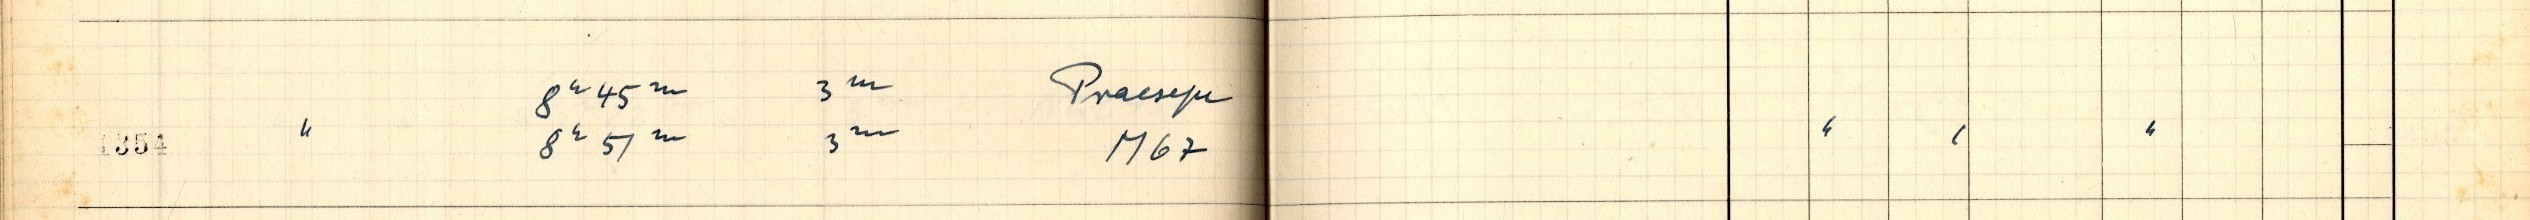 8ʰ 45ᵐ 3ᵐ Praesepe
1354 " 8ʰ 51ᵐ 3ᵐ M 67 " ( "